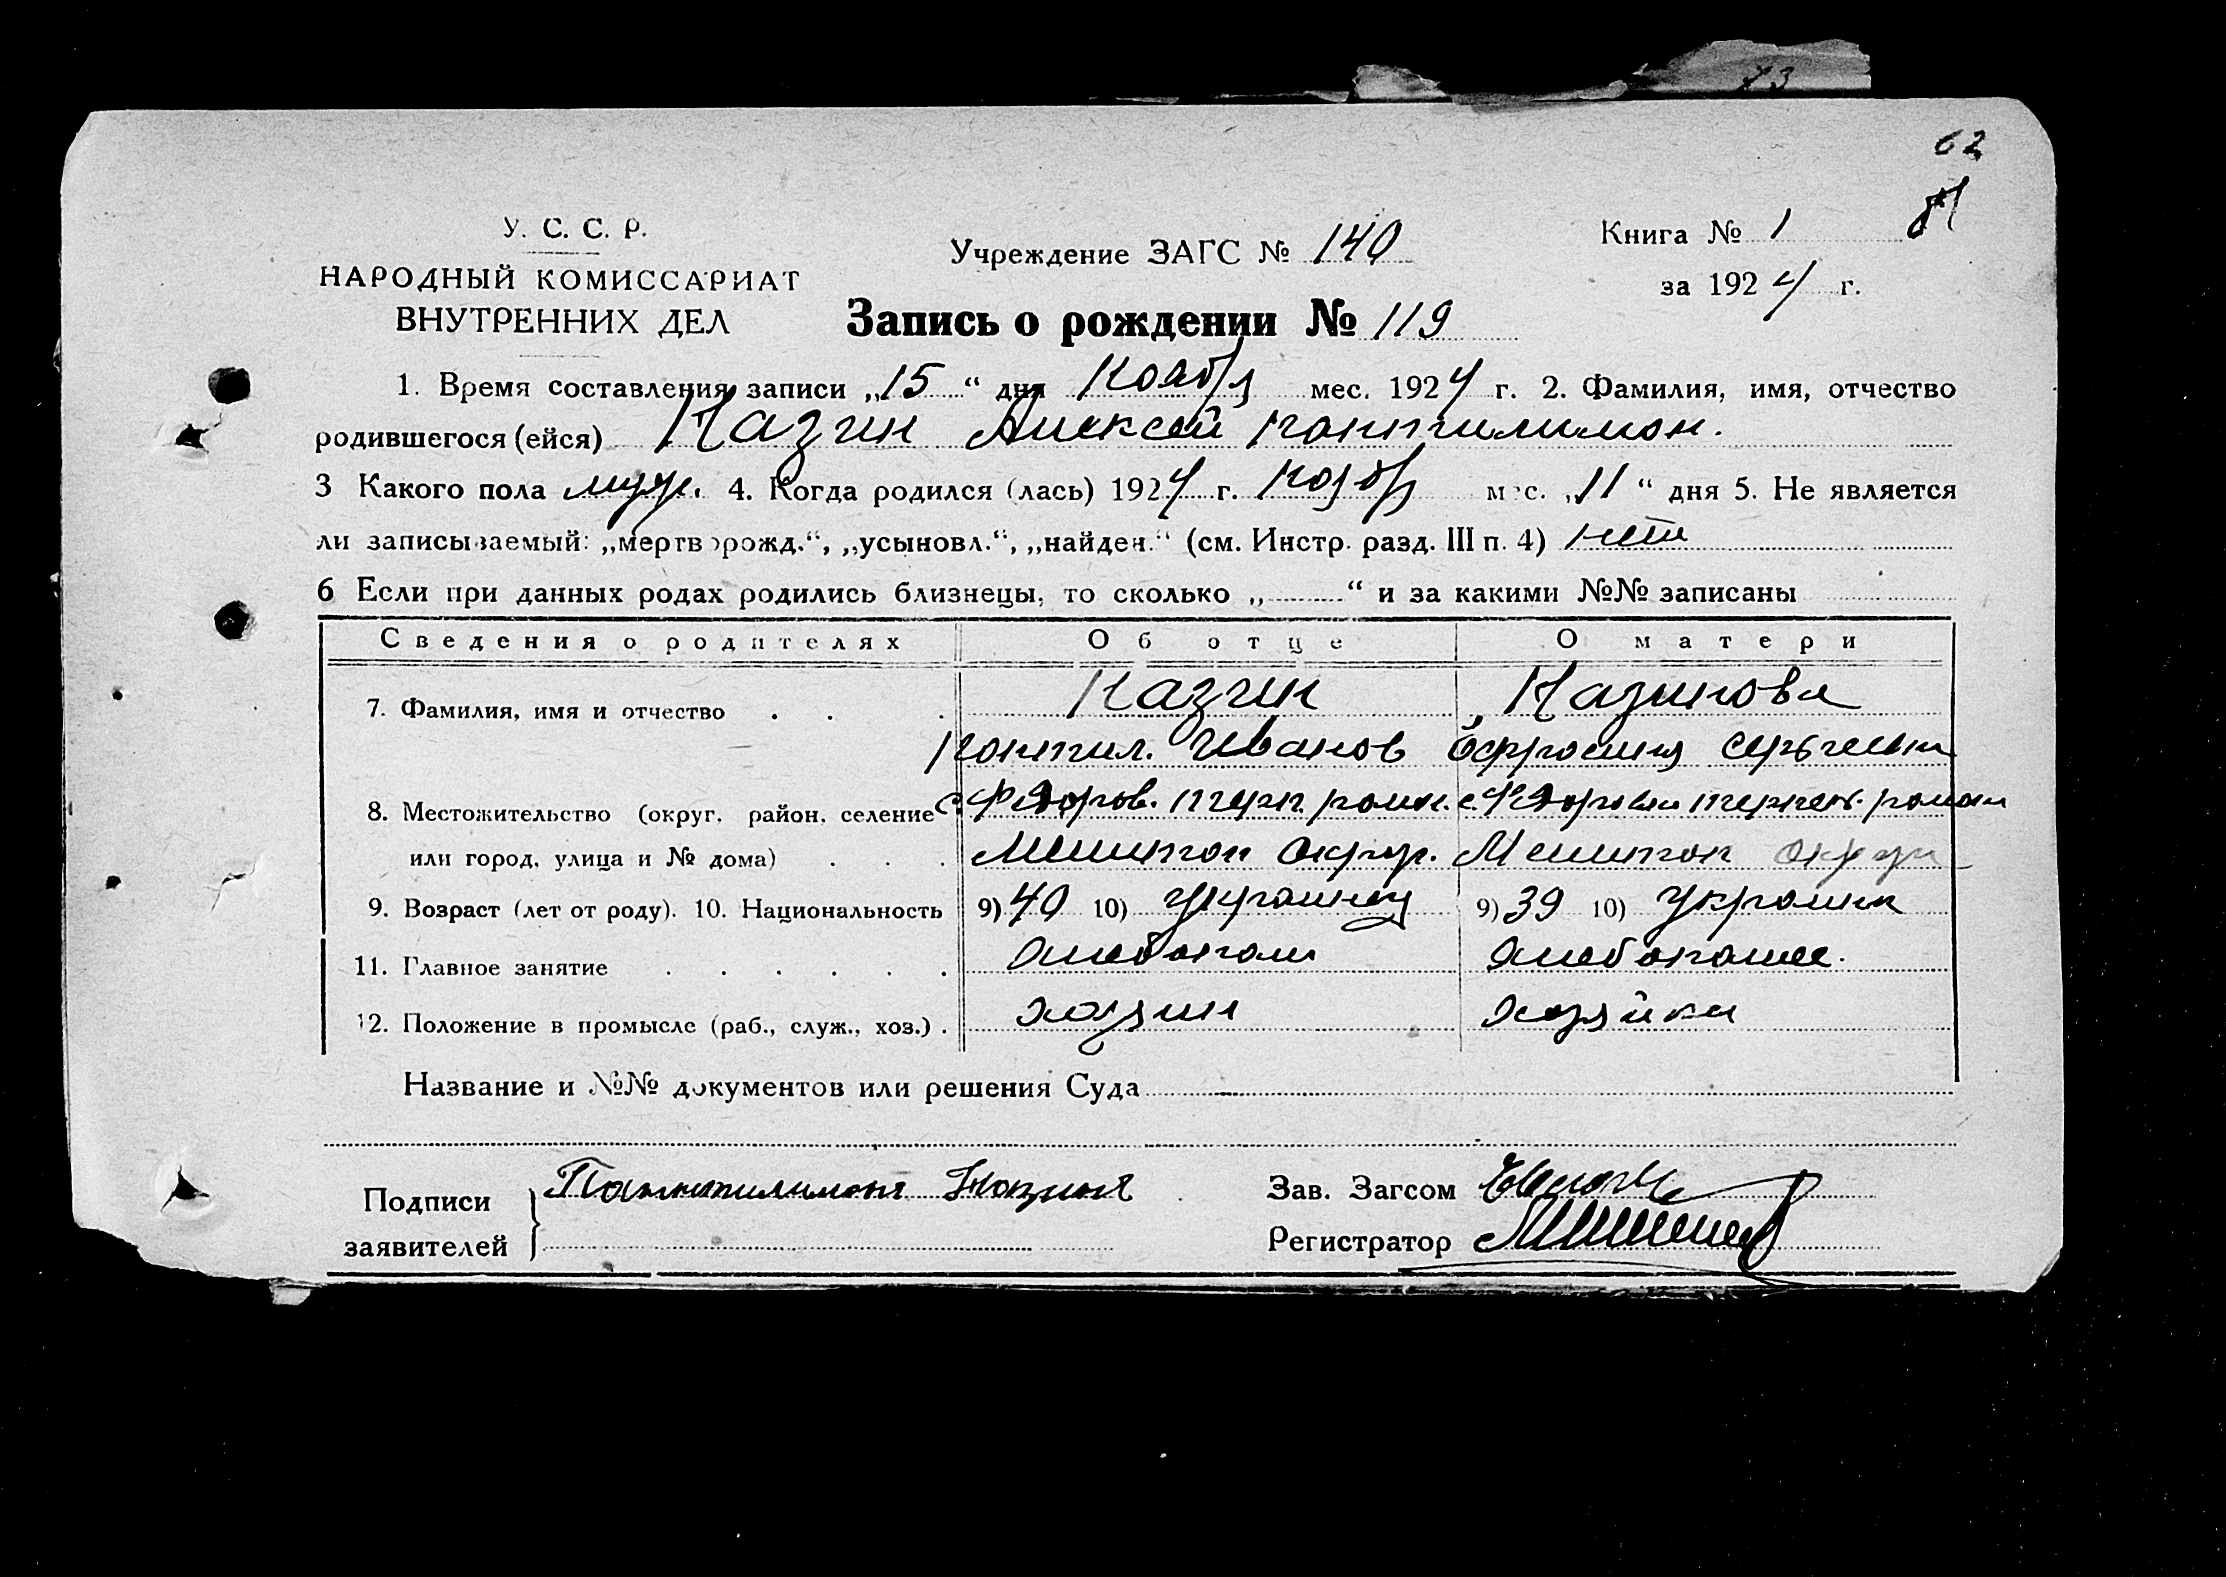 73
62
У. С. С. Р.
НАРОДНЫЙ КОМИССАРИАТ
ВНУТРЕННИХ ДЕЛ
Учреждение ЗАГС № 140
Книга № 1
за 1924 г.
Запись о рождении № 119
1. Время составления записи „15“ дня Ноября мес. 1924 г. 2. Фамилия, имя, отчество
родившегося (ейся) Назин Алексей Пантилимон.
3 Какого пола муж. 4. Когда родился (лась) 1924 г. Ноябр мес. „11“ дня 5. Не является
ли записываемый: „мертворожд.“, „усыновл.“, „найден.“ (см. Инстр. разд. III п. 4) нет
6 Если при данных родах родились близнецы, то сколько „ “ и за какими №№ записаны
Сведения о родителях Об отце О матери
7. Фамилия, имя и отчество Назин Назинова
Пантил. Иванов Ефросиния Сергеевна
8. Местожительство (округ, район, селение с. Федоров. терп. район. с.
или город, улица и № дома) Мелитоп округ. Мелитоп округ
9. Возраст (лет от роду). 10. Национальность 9) 40 10) Украинец 9) 39 10) Украинк
11. Главное занятие Хлебопаш Хлебопашес.
12. Положение в промысле (раб., служ., хоз.) хозяин хозяйка
Название и №№ документов или решения Суда
Подписи
заявителей
Пантилимон Назин
Зав. Загсом
Регистратор